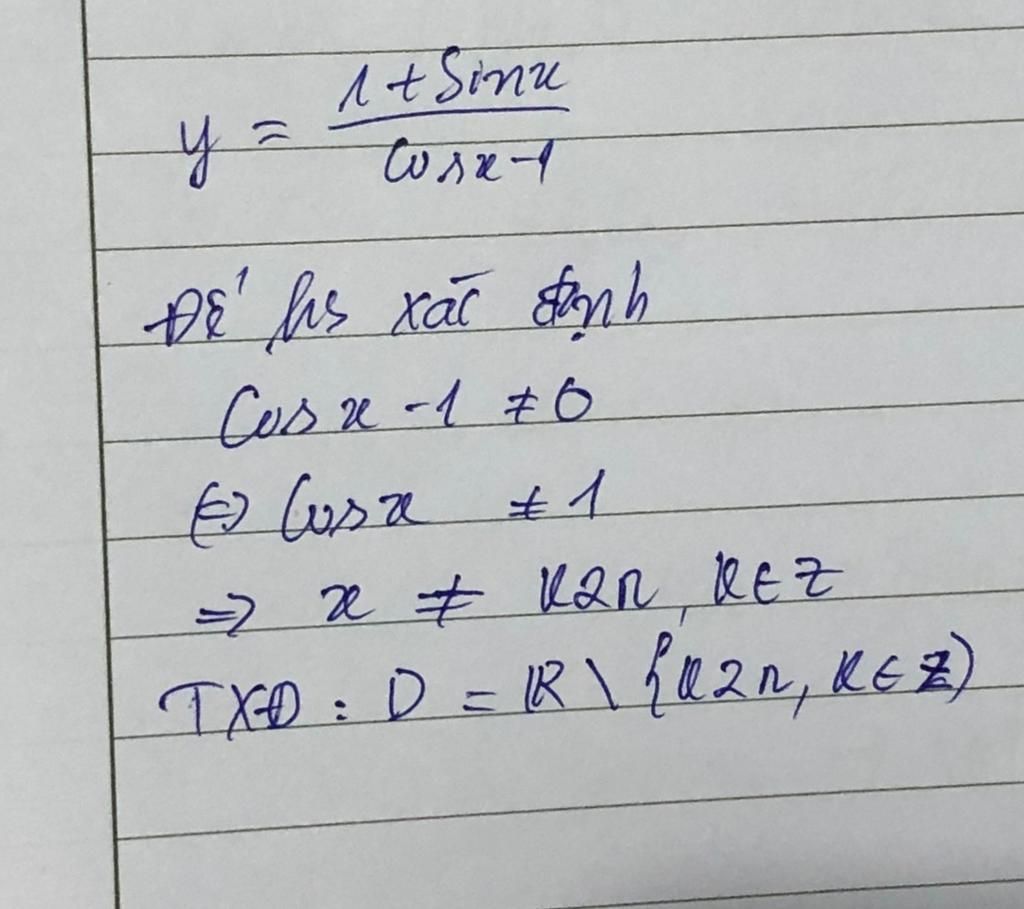 y = \frac{1 + Sinx}{Cosx - 1}
Để hs xác định
Cos x - 1 ≠ 0
⇔ Cos x ≠ 1
⇒ x ≠ k2π, k ∈ Z
TXĐ : D = ℝ \ {k2π, k ∈ Z)